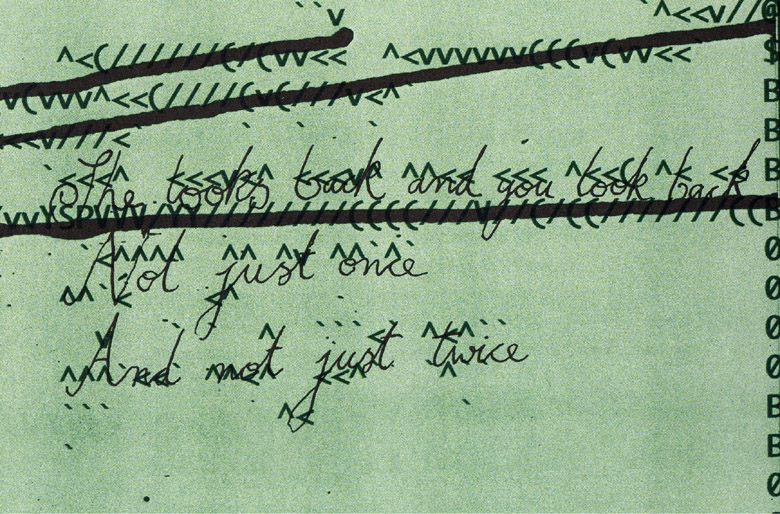 She looks back and you look back
Not just once
And not just twice